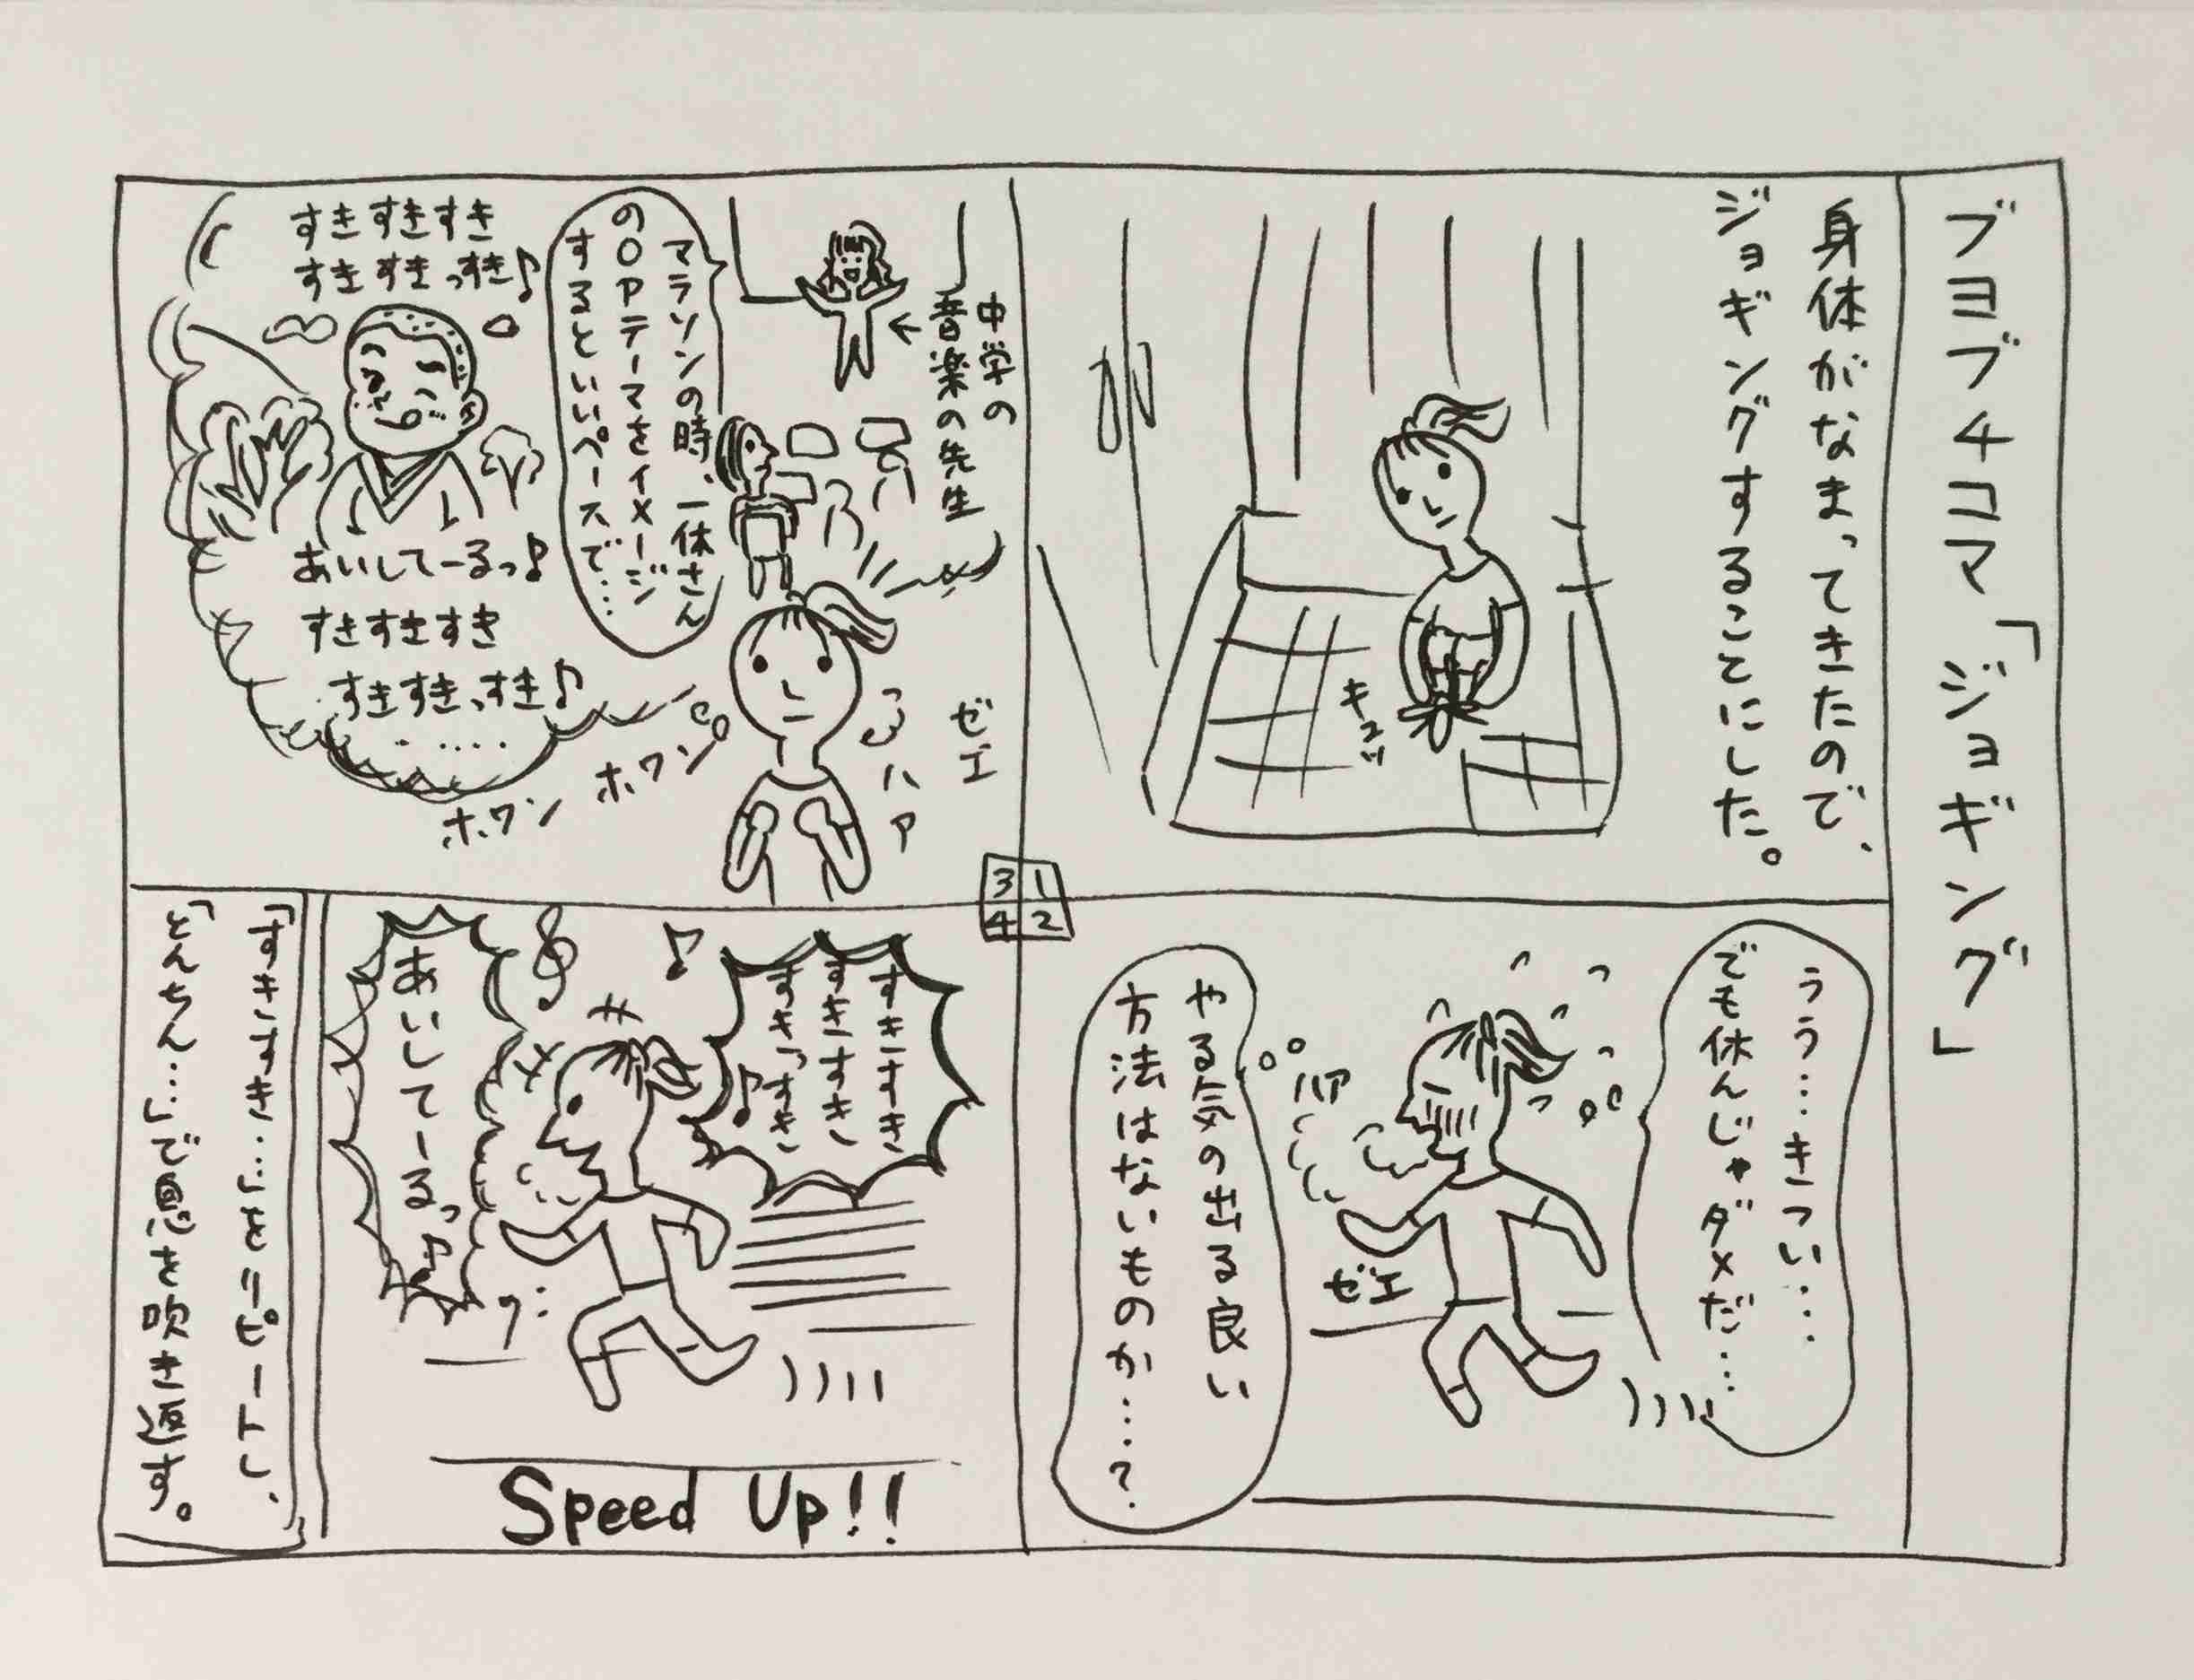 ブヨブヨ4コマ「ジョギング」
身体がなまってきたので、
ジョギングすることにした。
キュッ
うう…きつい…
でも休んじゃダメだ…
ハア
ゼエ
やる気の出る良い
方法はないものか…?
3 1
4 2
中学の
音楽の先生
マラソンの時、一休さん
のOPテーマをイメージ
するといいペースで…
ゼエ
ハア
ホワン ホワン
すきすきすき
すきすきっすき♪
あいしてーるっ♪
すきすきすき
すきすきっすき♪
・・・・・
すきすき
すきすき
すきっすき♪
あいしてーるっ♪
Speed Up!!
「すきすき…」をリピートし、
「とんちん…」で息を吹き返す。